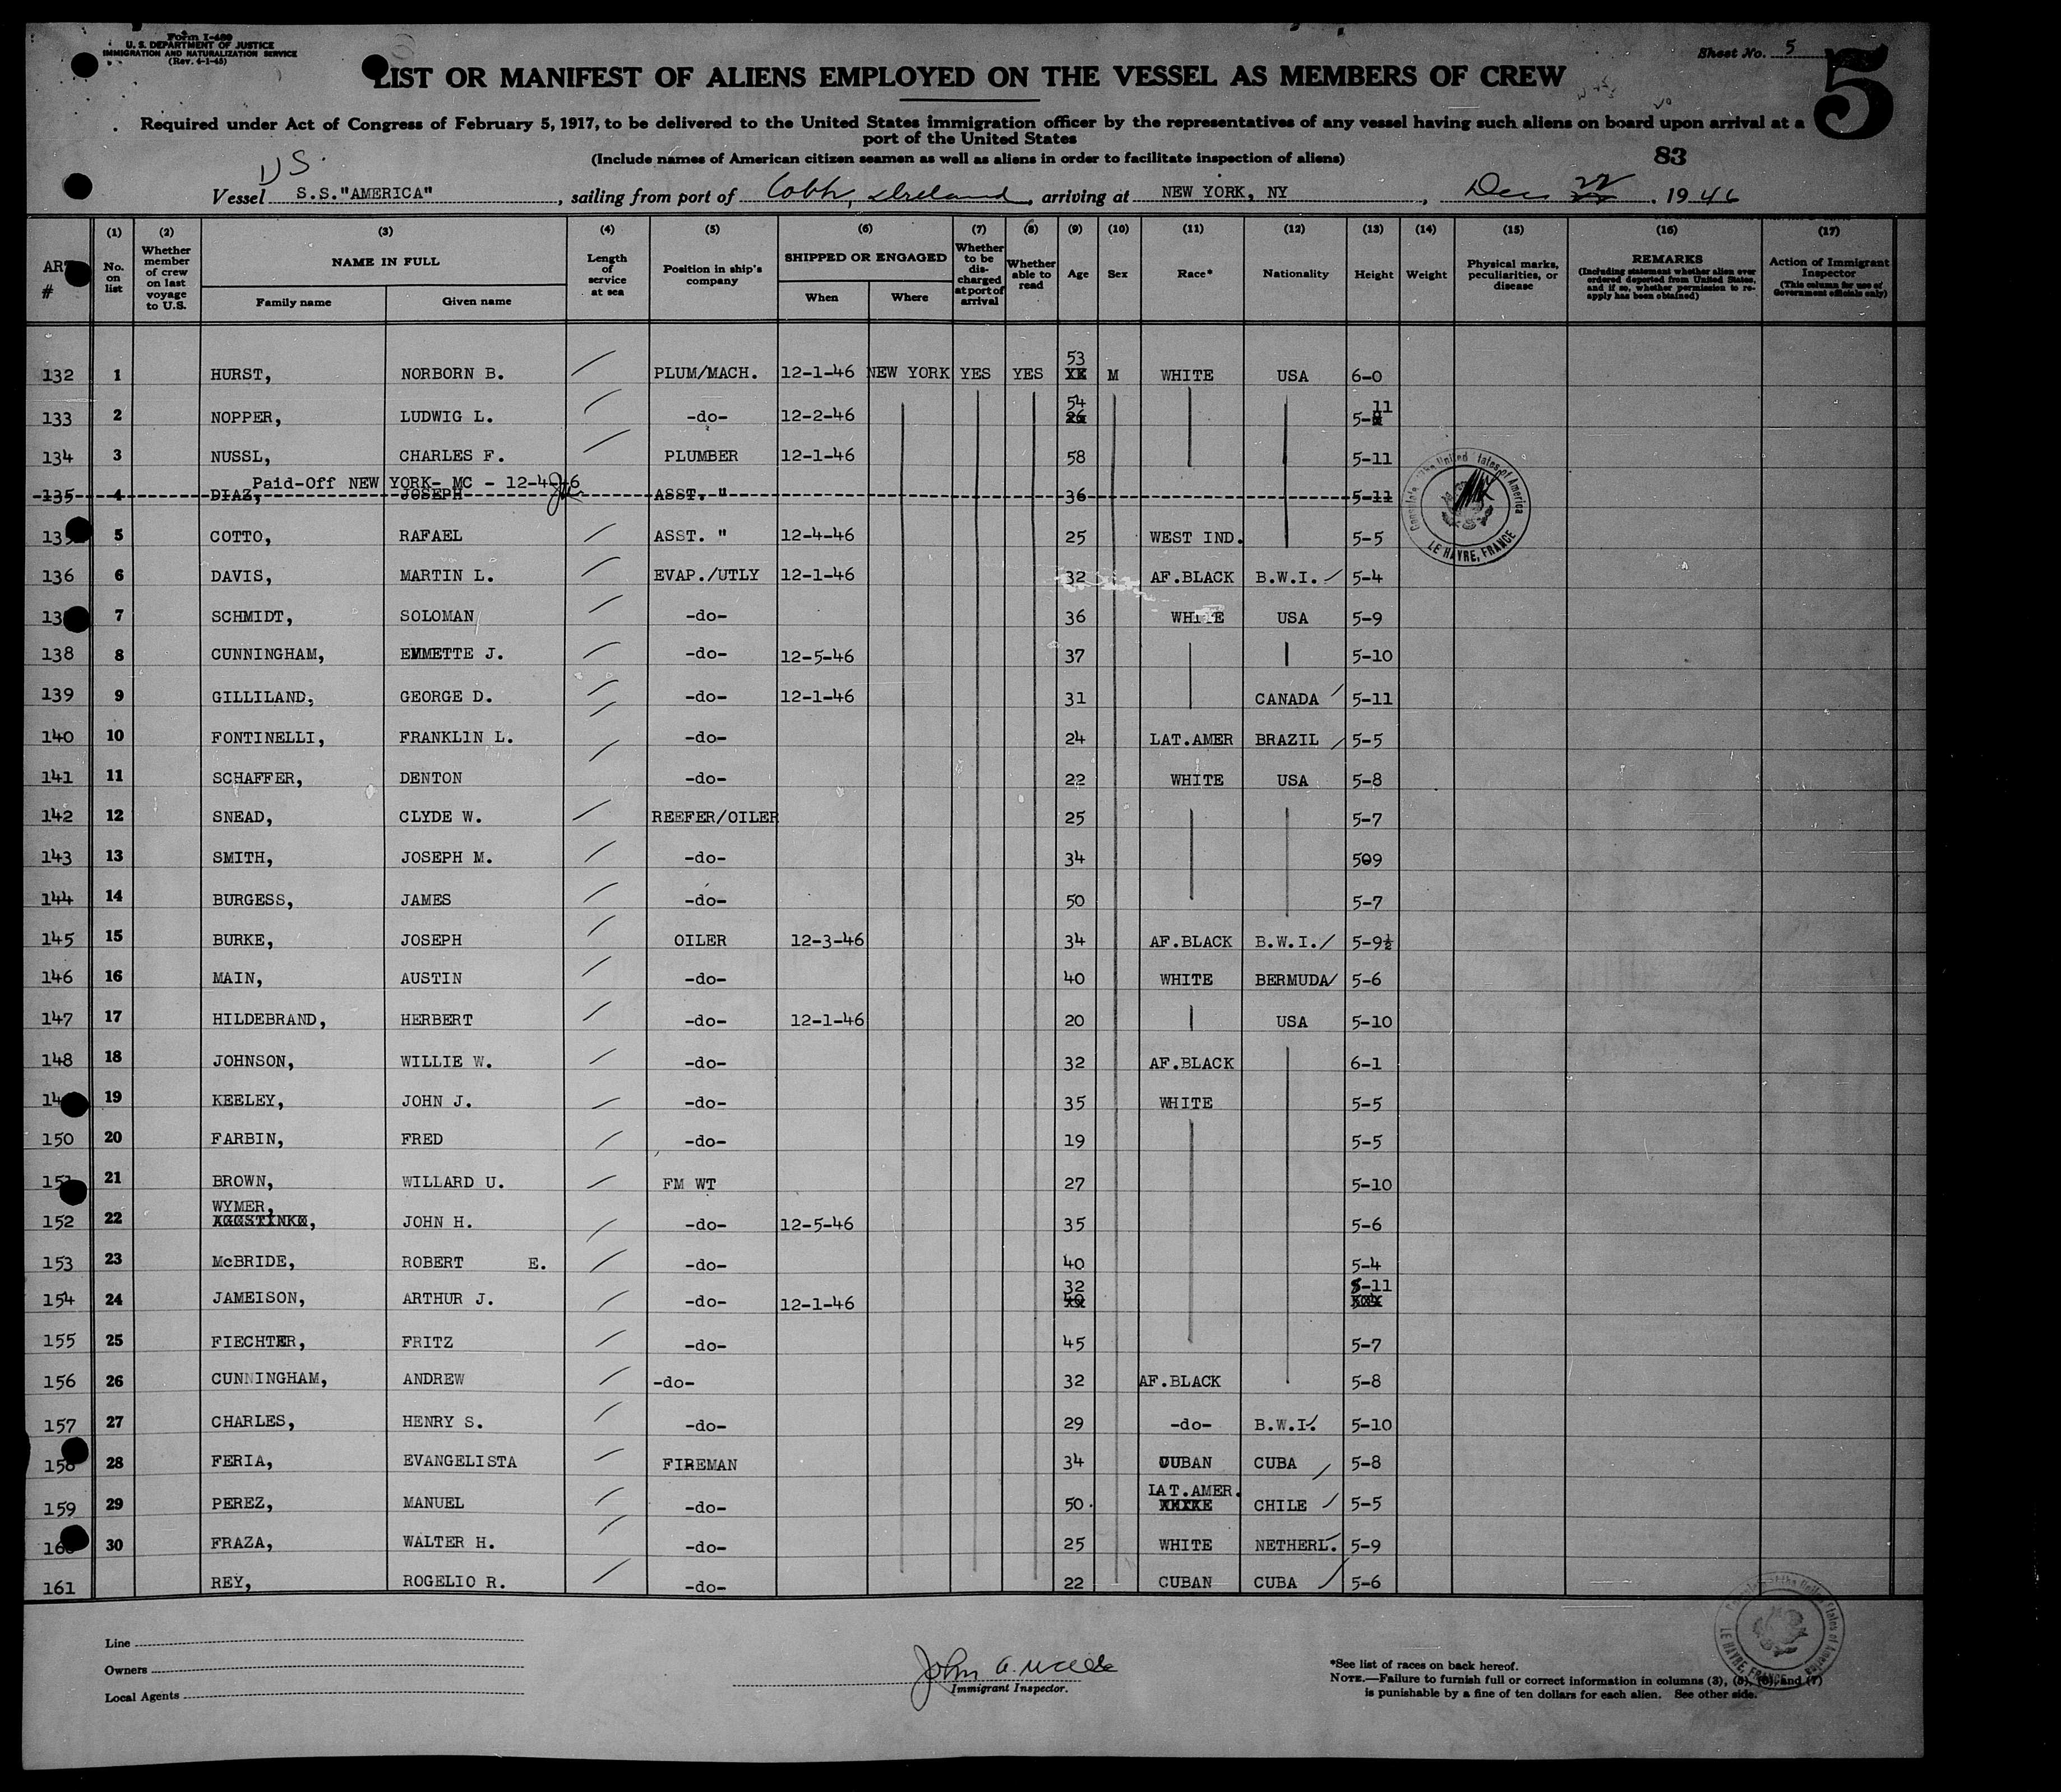 Form I-489
U. S. DEPARTMENT OF JUSTICE
IMMIGRATION AND NATURALIZATION SERVICE
(Rev. 4-1-45)
Sheet No. 5
5
LIST OR MANIFEST OF ALIENS EMPLOYED ON THE VESSEL AS MEMBERS OF CREW
Required under Act of Congress of February 5, 1917, to be delivered to the United States immigration officer by the representatives of any vessel having such aliens on board upon arrival at a
port of the United States
(Include names of American citizen seamen as well as aliens in order to facilitate inspection of aliens)
83
US.
Vessel S.S."AMERICA", sailing from port of Cobh, Ireland, arriving at NEW YORK, NY, Dec 22, 1946
ART # (1) No. on list (2) Whether member of crew on last voyage to U.S. (3) NAME IN FULL Family name Given name (4) Length of service at sea (5) Position in ship's company (6) SHIPPED OR ENGAGED When Where (7) Whether to be discharged at port of arrival (8) Whether able to read (9) Age (10) Sex (11) Race* (12) Nationality (13) Height (14) Weight (15) Physical marks, peculiarities, or disease (16) REMARKS (Including statement whether alien ever ordered deported from United States, and if so, whether permission to re-apply has been obtained) (17) Action of Immigrant Inspector (This column for use of Government officials only)
132 1 HURST, NORBORN B. PLUM/MACH. 12-1-46 NEW YORK YES YES 53 M WHITE USA 6-0
133 2 NOPPER, LUDWIG L. -do- 12-2-46 54 5-11
134 3 NUSSL, CHARLES F. PLUMBER 12-1-46 58 5-11
Paid-Off NEW YORK- MC - 12-4-46
135 4 DIAZ, JOSEPH ASST. " 36 5-11
5 COTTO, RAFAEL ASST. " 12-4-46 25 WEST IND. 5-5
136 6 DAVIS, MARTIN L. EVAP./UTLY 12-1-46 32 AF.BLACK B.W.I. 5-4
7 SCHMIDT, SOLOMAN -do- 36 WHITE USA 5-9
138 8 CUNNINGHAM, EMMETTE J. -do- 12-5-46 37 5-10
139 9 GILLILAND, GEORGE D. -do- 12-1-46 31 CANADA 5-11
140 10 FONTINELLI, FRANKLIN L. -do- 24 LAT.AMER BRAZIL 5-5
141 11 SCHAFFER, DENTON -do- 22 WHITE USA 5-8
142 12 SNEAD, CLYDE W. REEFER/OILER 25 5-7
143 13 SMITH, JOSEPH M. -do- 34 509
144 14 BURGESS, JAMES -do- 50 5-7
145 15 BURKE, JOSEPH OILER 12-3-46 34 AF.BLACK B.W.I. 5-9½
146 16 MAIN, AUSTIN -do- 40 WHITE BERMUDA 5-6
147 17 HILDEBRAND, HERBERT -do- 12-1-46 20 USA 5-10
148 18 JOHNSON, WILLIE W. -do- 32 AF.BLACK 6-1
19 KEELEY, JOHN J. -do- 35 WHITE 5-5
150 20 FARBIN, FRED -do- 19 5-5
21 BROWN, WILLARD U. FM WT 27 5-10
152 22 WYMER, JOHN H. -do- 12-5-46 35 5-6
153 23 McBRIDE, ROBERT E. -do- 40 5-4
154 24 JAMEISON, ARTHUR J. -do- 12-1-46 32 5-11
155 25 FIECHTER, FRITZ -do- 45 5-7
156 26 CUNNINGHAM, ANDREW -do- 32 AF.BLACK 5-8
157 27 CHARLES, HENRY S. -do- 29 -do- B.W.I. 5-10
28 FERIA, EVANGELISTA FIREMAN 34 CUBAN CUBA 5-8
159 29 PEREZ, MANUEL -do- 50 LAT.AMER. CHILE 5-5
30 FRAZA, WALTER H. -do- 25 WHITE NETHERL. 5-9
161 REY, ROGELIO R. -do- 22 CUBAN CUBA 5-6
Consulate of the United States of America
LE HAVRE, FRANCE
Line
Owners
Local Agents
John
Immigrant Inspector.
*See list of races on back hereof.
NOTE.—Failure to furnish full or correct information in columns (3), (5), (6), and (7)
is punishable by a fine of ten dollars for each alien. See other side.
Consulate of the United States of America
LE HAVRE, FRANCE